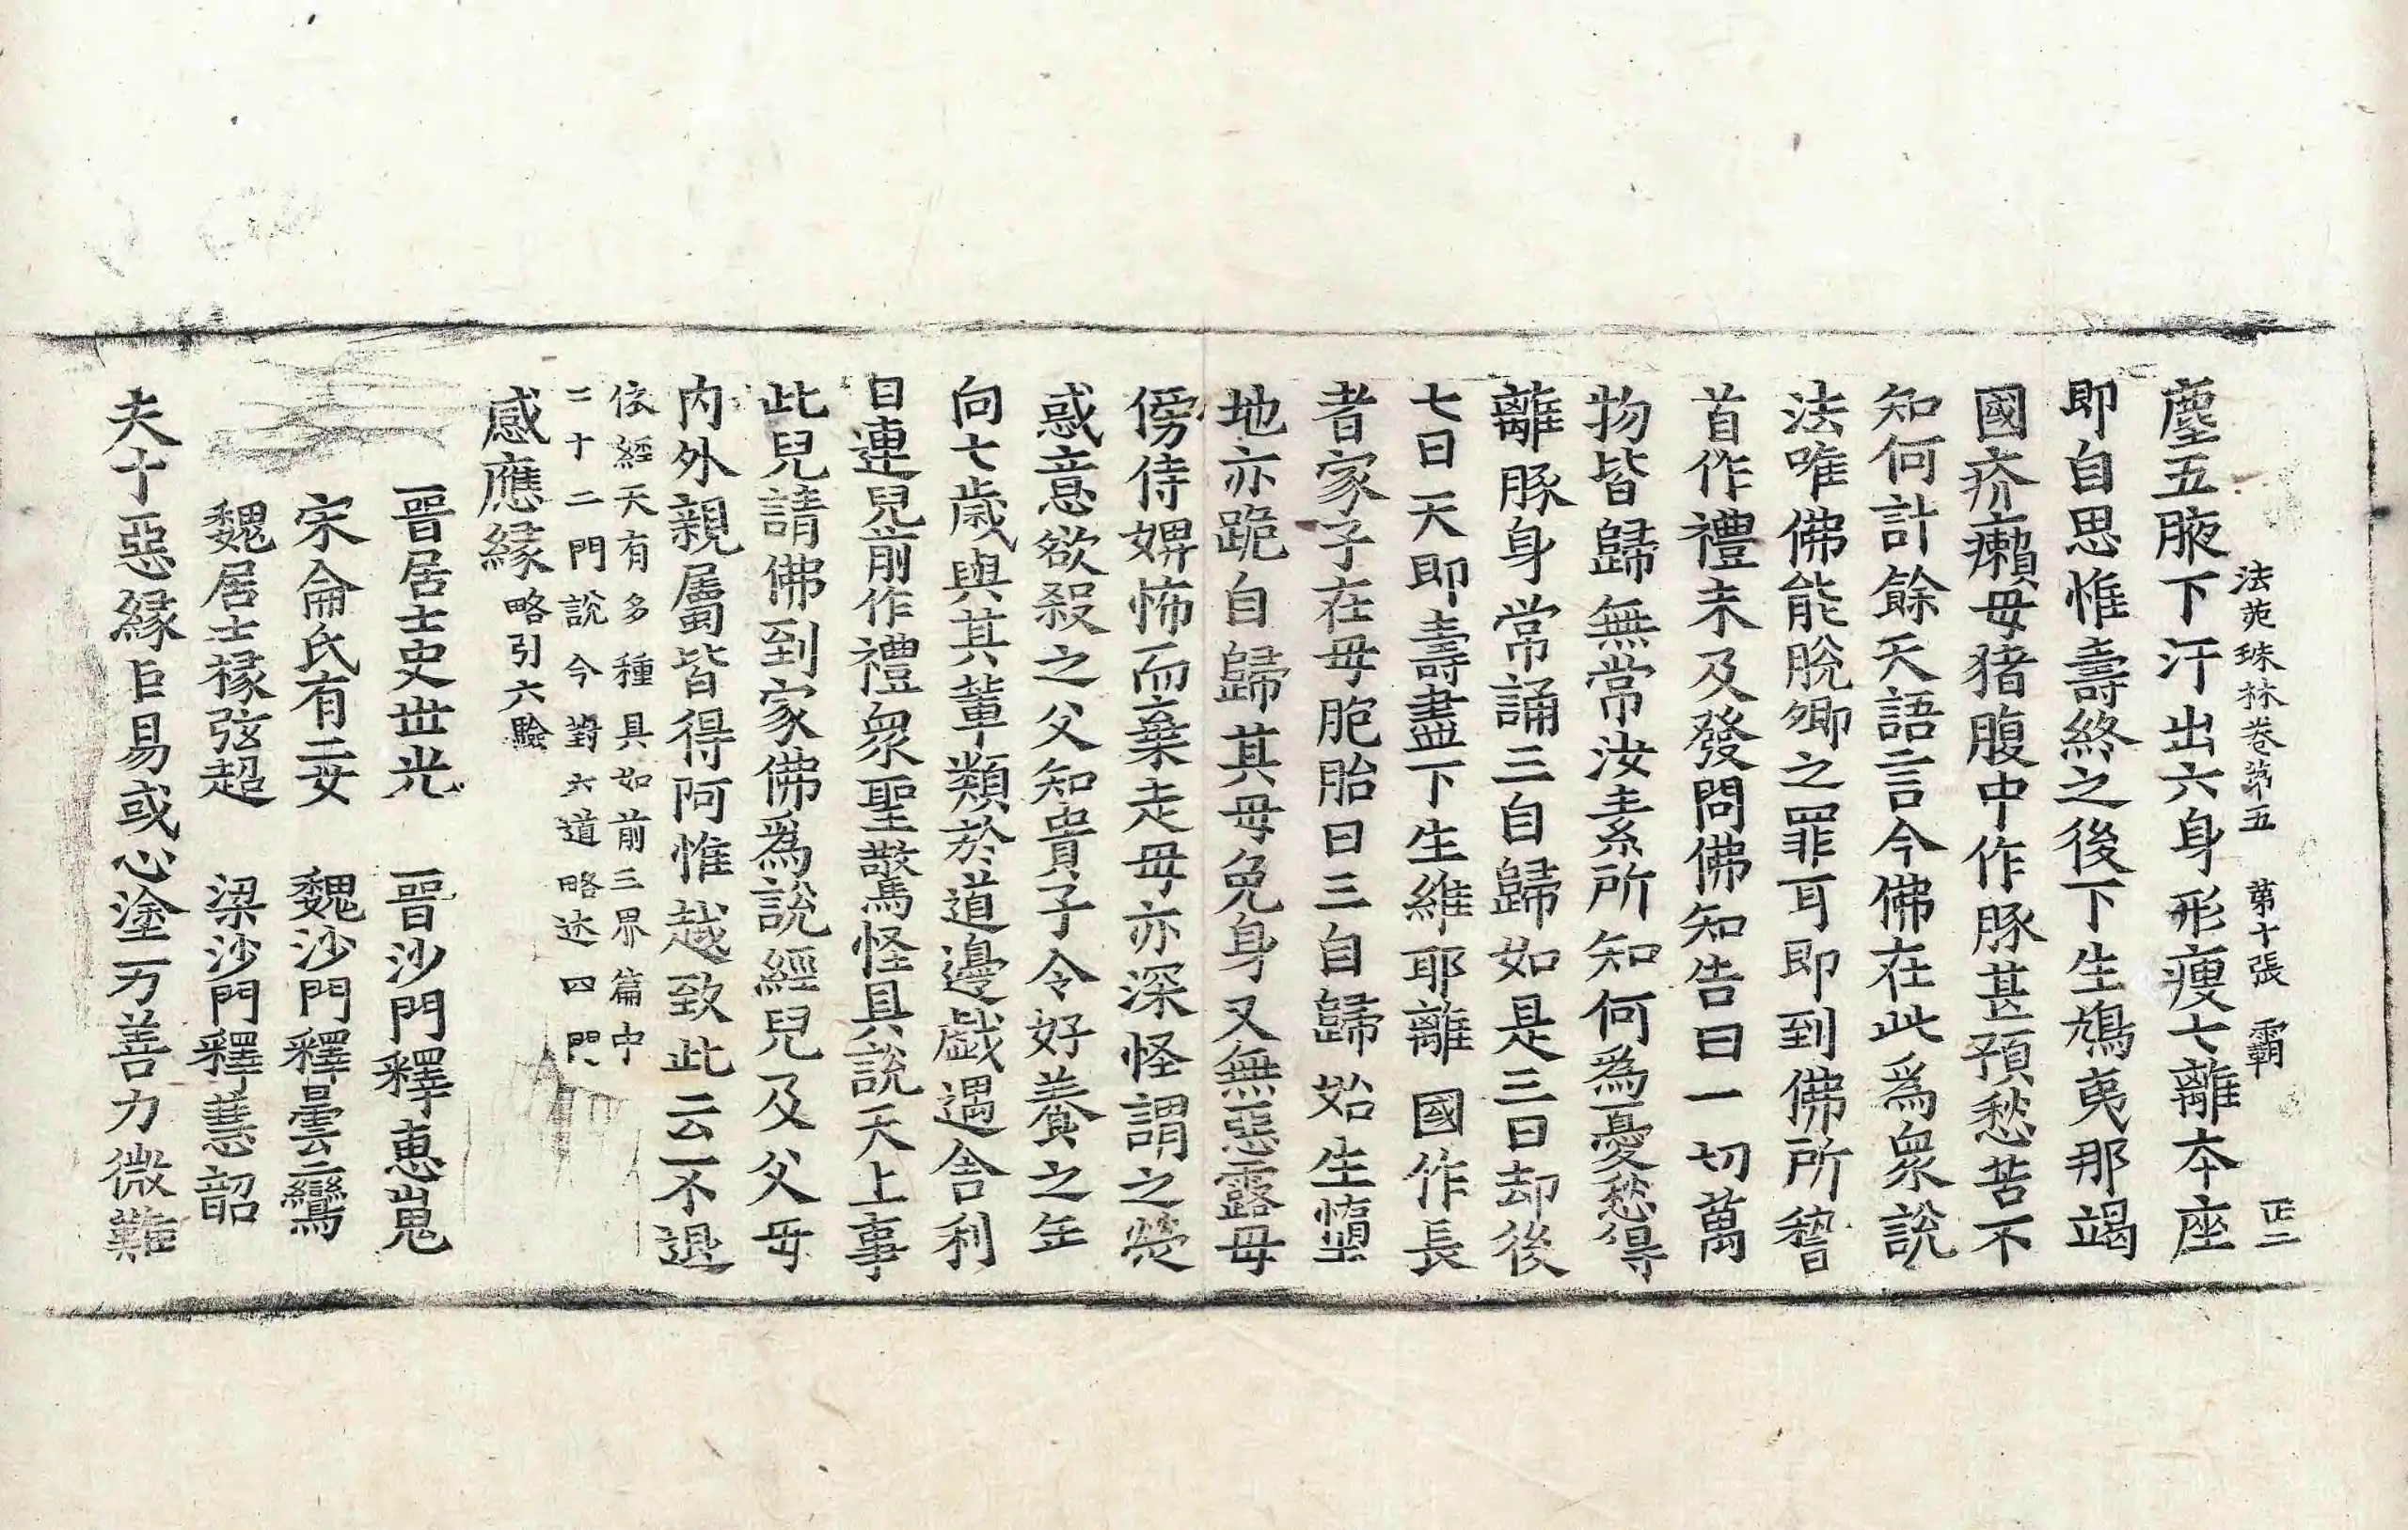 法苑珠林卷第五　第十張　霸　正二
塵五腋下汗出六身形瘦七離本座
即自思惟壽終之後下生鳩夷那竭
國疥癩母猪腹中作豚甚預愁苦不
知何計餘天語言今佛在此爲衆說
法唯佛能脫卿之罪耳即到佛所稽
首作禮未及發問佛知告曰一切萬
物皆歸無常汝素所知何爲憂愁得
離豚身常誦三自歸如是三日却後
七日天即壽盡下生維耶離國作長
者家子在母胞胎日三自歸始生墮
地亦跪自歸其母免身又無惡露母
傍侍婢怖而棄走母亦深怪謂之熒
惑意欲殺之父知貴子令好養之年
向七歲與其輩類於道邊戲遇舍利
日連兒前作禮衆聖驚怪具說天上事
此兒請佛到家佛爲說經兒及父母
内外親屬皆得阿惟越致此云不退
依經天有多種具如前三界篇中
二十二門說今對六道略述四門
感應緣略引六驗
晉居士史世光　晉沙門釋惠嵬
宋侖氏有二女　魏沙門釋曇鸞
魏居士椽弦超　梁沙門釋慧韶
夫十惡緣巨易惑心塗万善力微難